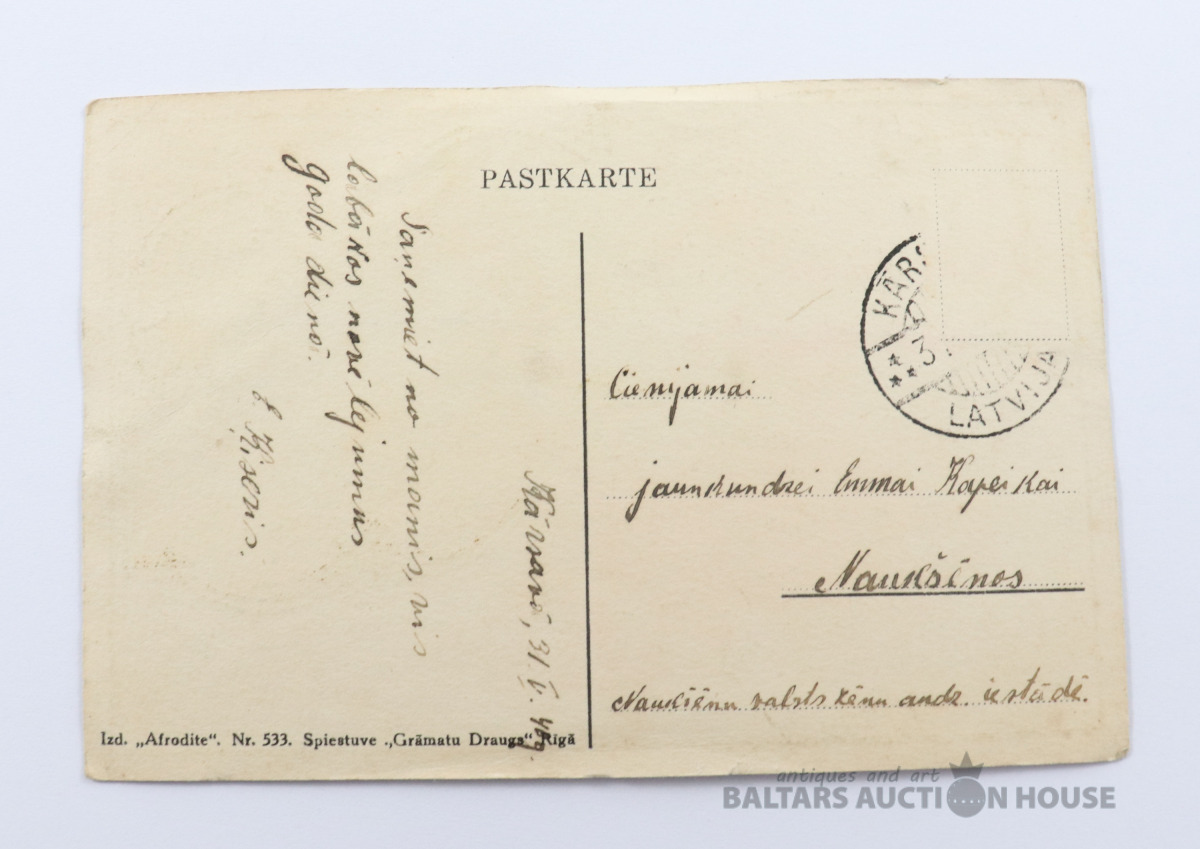 PASTKARTE
Saņemiet no manis, vis
labākos novēlejumus
goda dienā.
E. Ķiseris.
Kārsavā, 31. V. 40g.
KĀRS
3
LATVIJA
Cienijamai
jaunkundzei Emmai Kapeikai
Naukšēnos
Naukšēnu valsts zēnu audz. iestādē.
Izd. „Afrodite". Nr. 533. Spiestuve „Grāmatu Draugs" Rīgā
antiques and art
BALTARS AUCTION HOUSE